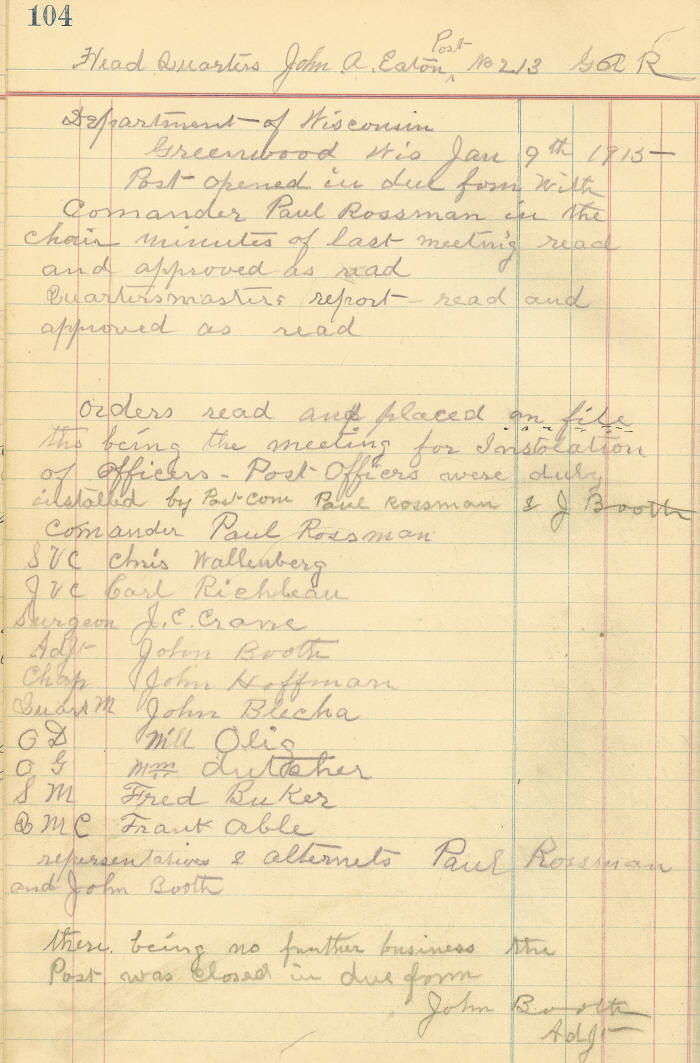 104
Head Quarters John A. Eaton Post No 213 G A R
Department of Wisconsin
Greenwood Wis Jan 9th 1915
Post opened in due form With
Comander Paul Rossman in the
chair minutes of last meeting read
and approved as read
Quartersmasters report read and
approved as read
Orders read and placed on file
this being the meeting for Instolation
of officers - Post Officers were duly
installed by Post Com Paul Rossman & J Booth
Comander Paul Rossman
S V C Chris Wallenberg
J V C Carl Richbeau
Surgeon J. C. Crane
Adjt John Booth
Chap John Hoffman
Quart M John Blecha
O D Will Olig
O G Wm dutcher
S M Fred Buker
Q M C Frank able
representatives & alternets Paul Rossman
and John Booth
there being no further business the
Post was closed in due form
John Booth
Adjt